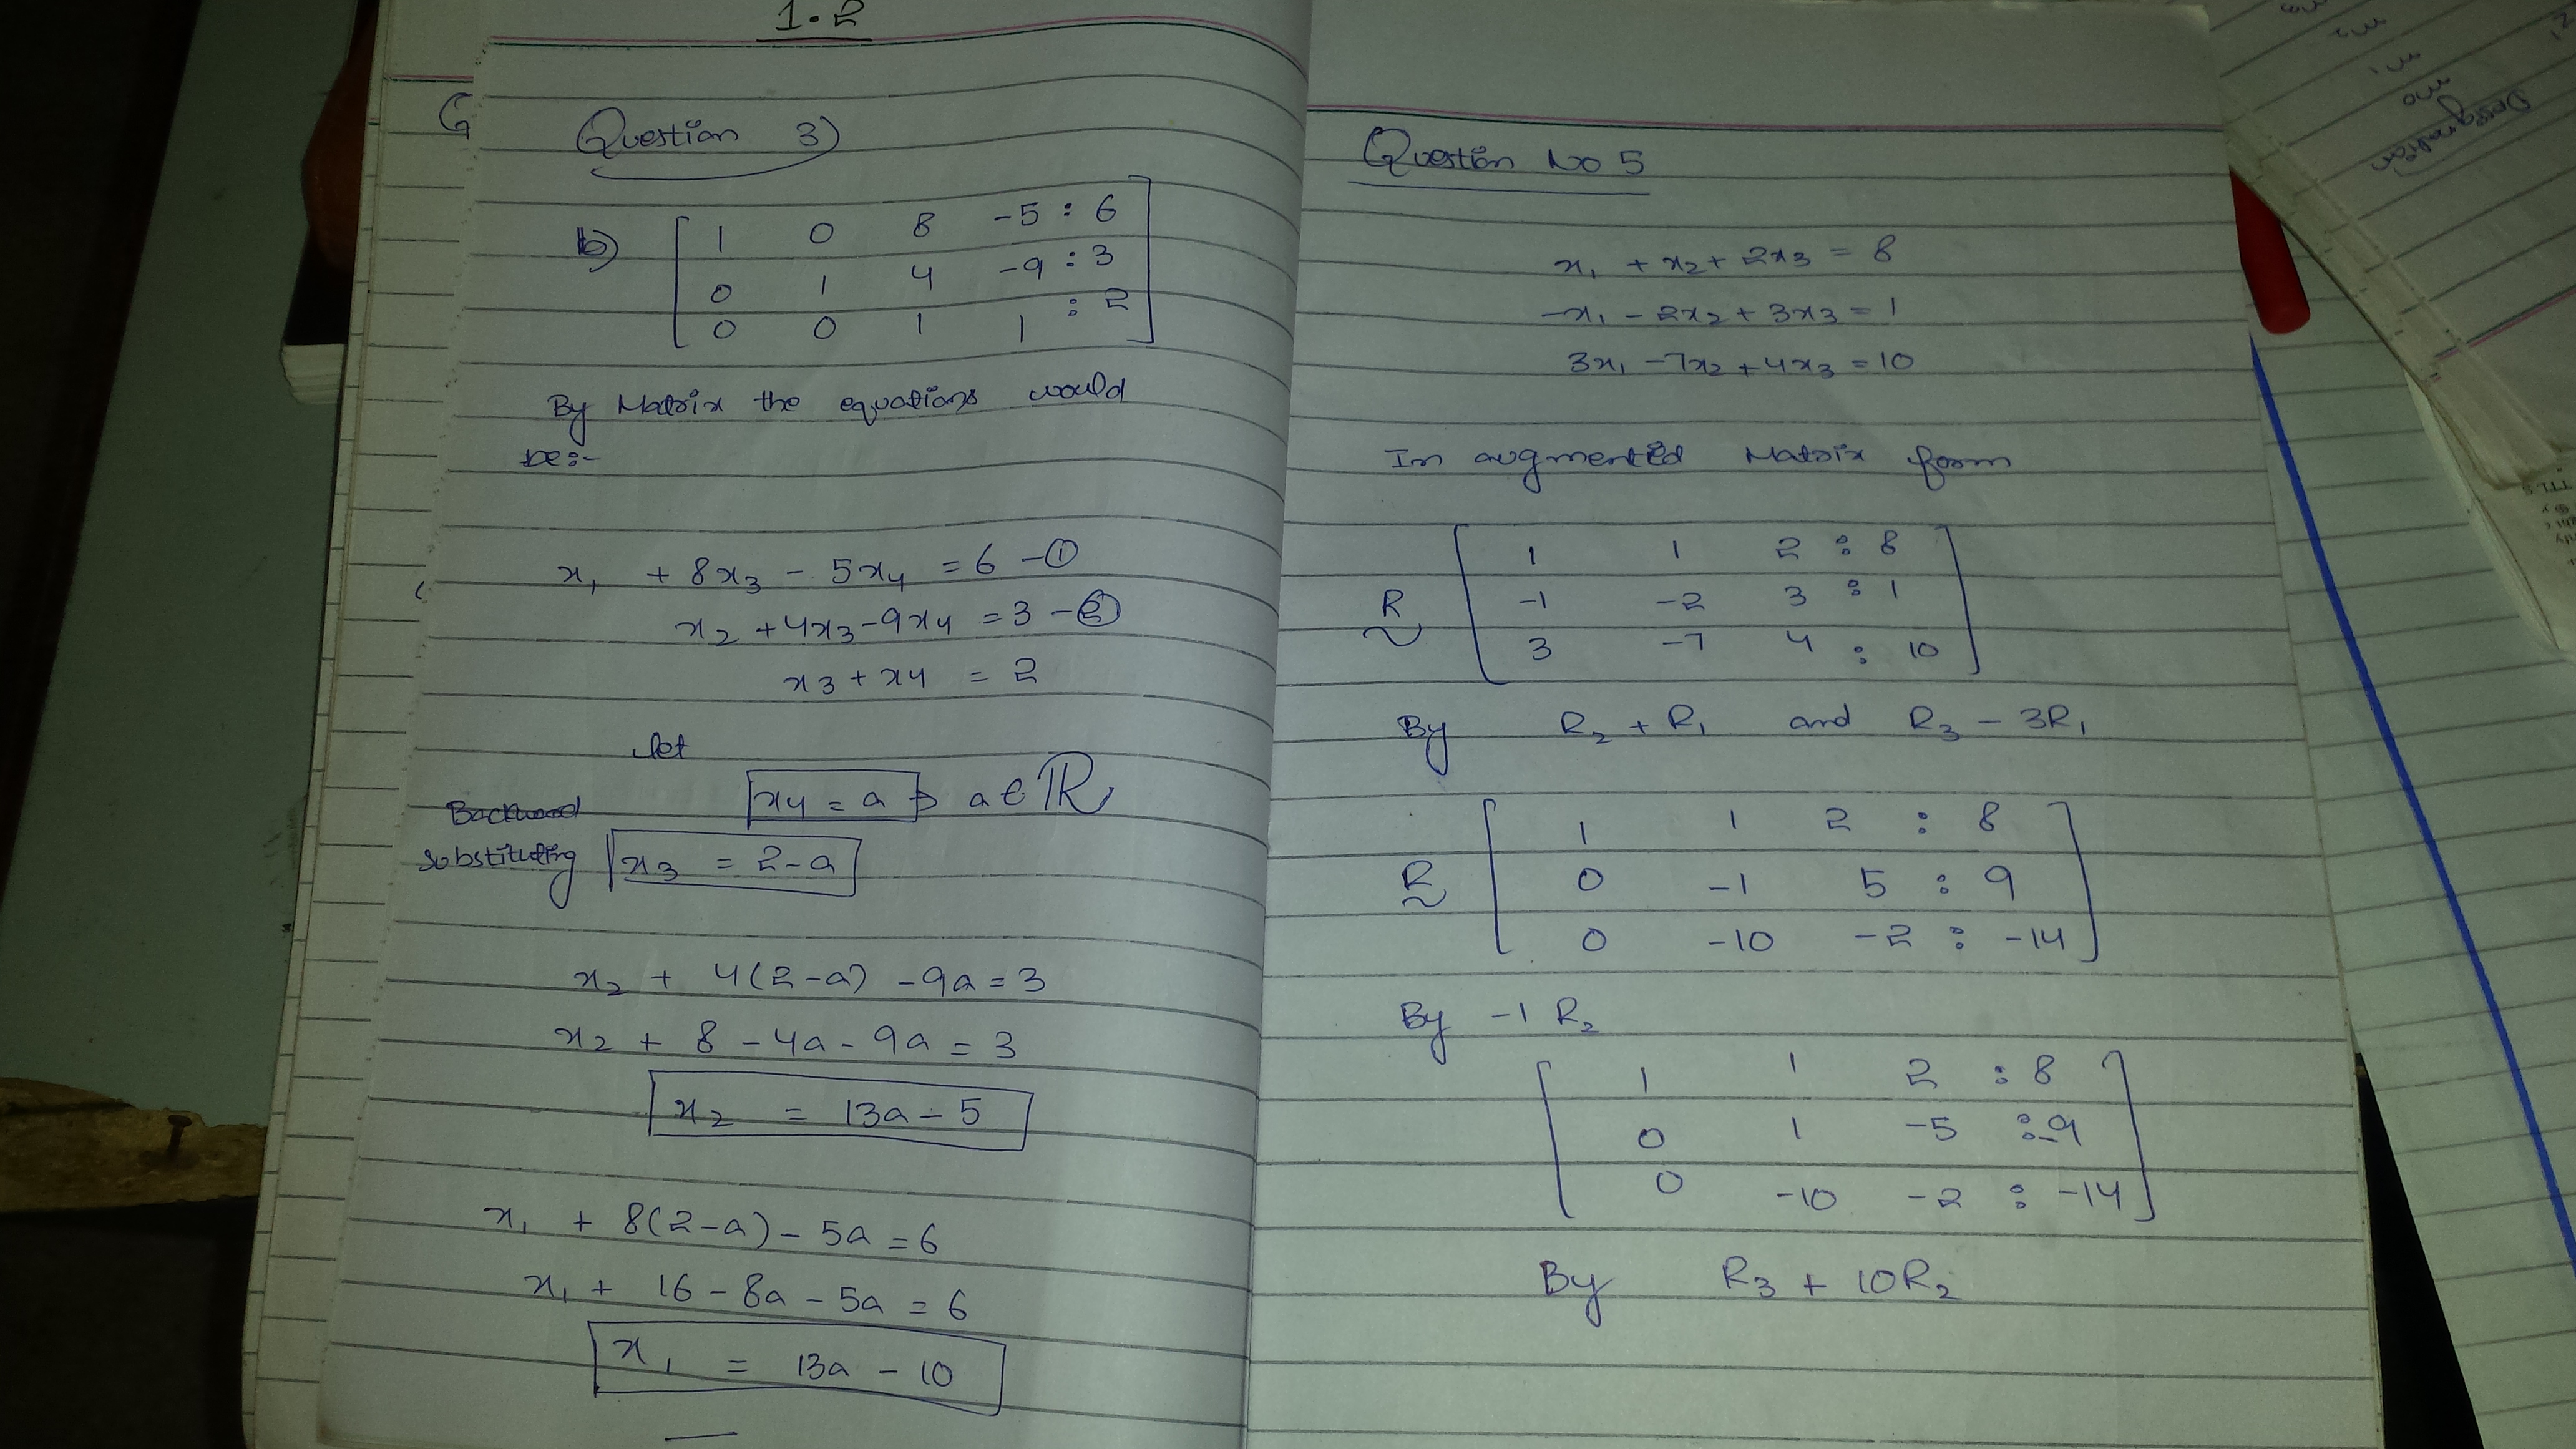 1.2
G
Question 3)
b) [ 1 0 8 -5 : 6
0 1 4 -9 : 3
0 0 1 1 : 2 ]
By Matrix the equations would
be:-
x₁ + 8x₃ - 5x₄ = 6 -①
x₂ + 4x₃ - 9x₄ = 3 -②
x₃ + x₄ = 2
let
x₄ = a , a ∈ ℝ
Backward
substituting x₃ = 2-a
x₂ + 4(2-a) - 9a = 3
x₂ + 8 - 4a - 9a = 3
x₂ = 13a - 5
x₁ + 8(2-a) - 5a = 6
x₁ + 16 - 8a - 5a = 6
x₁ = 13a - 10
Question No 5
x₁ + x₂ + 2x₃ = 8
-x₁ - 2x₂ + 3x₃ = 1
3x₁ - 7x₂ + 4x₃ = 10
In augmented Matrix form
R~ [ 1 1 2 : 8
-1 -2 3 : 1
3 -7 4 : 10 ]
By R₂ + R₁ and R₃ - 3R₁
R~ [ 1 1 2 : 8
0 -1 5 : 9
0 -10 -2 : -14 ]
By -1 R₂
[ 1 1 2 : 8
0 1 -5 : -9
0 -10 -2 : -14 ]
By R₃ + 10R₂